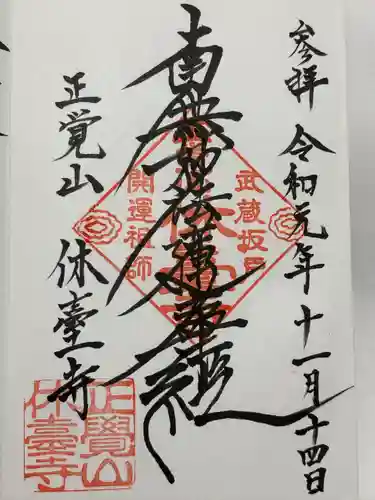 参拝 令和元年十一月十四日
南無妙法蓮華経
正覚山 休臺寺
武蔵坂戸
開運祖師
正覺山
休臺寺